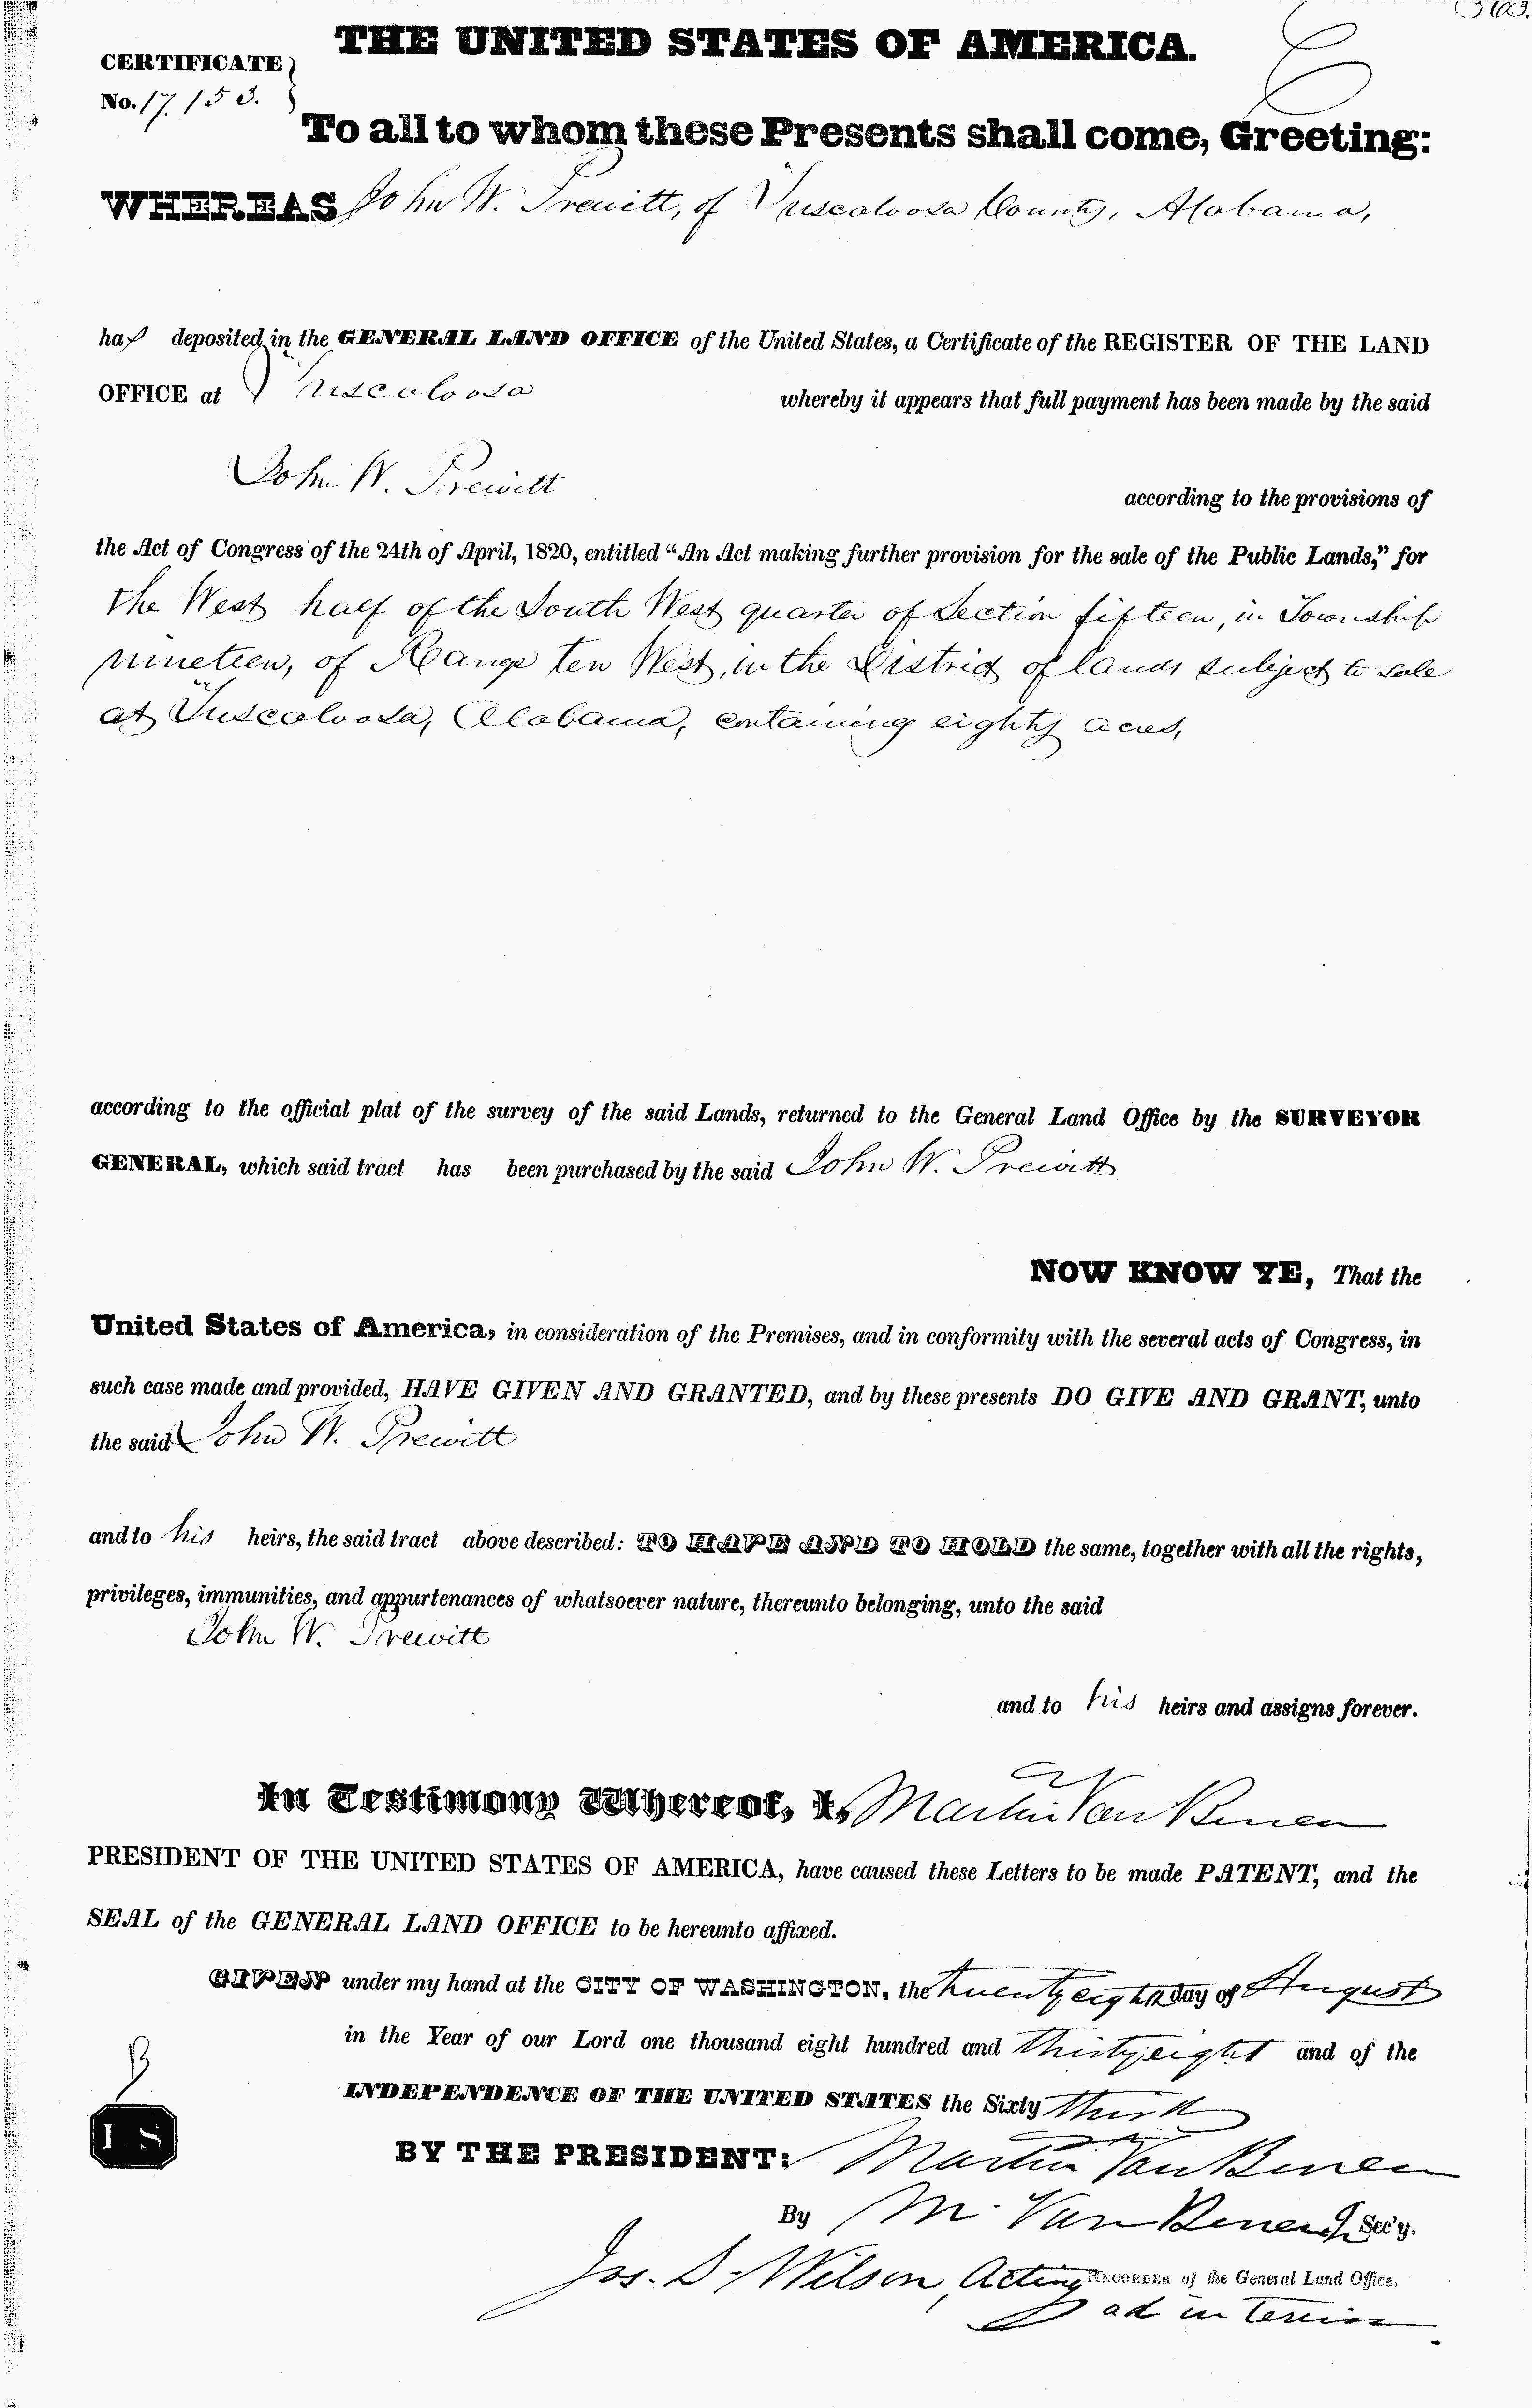 363.
THE UNITED STATES OF AMERICA.
CERTIFICATE
No. 17.153.
To all to whom these Presents shall come, Greeting:
WHEREAS John W. Prewitt, of Tuscaloosa County, Alabama,
has deposited in the GENERAL LAND OFFICE of the United States, a Certificate of the REGISTER OF THE LAND
OFFICE at Tuscaloosa whereby it appears that full payment has been made by the said
John W. Prewitt
according to the provisions of
the Act of Congress of the 24th of April, 1820, entitled “An Act making further provision for the sale of the Public Lands,” for
the West half of the South West quarter of Section fifteen, in Township
nineteen, of Range ten West, in the District of lands subject to sale
at Tuscaloosa, Alabama, containing eighty acres,
according to the official plat of the survey of the said Lands, returned to the General Land Office by the SURVEYOR
GENERAL, which said tract has been purchased by the said John W. Prewitt
NOW KNOW YE, That the
United States of America, in consideration of the Premises, and in conformity with the several acts of Congress, in
such case made and provided, HAVE GIVEN AND GRANTED, and by these presents DO GIVE AND GRANT, unto
the said John W. Prewitt
and to his heirs, the said tract above described: TO HAVE AND TO HOLD the same, together with all the rights,
privileges, immunities, and appurtenances of whatsoever nature, thereunto belonging, unto the said
John W. Prewitt
and to his heirs and assigns forever.
In Testimony Whereof, I, Martin Van Buren
PRESIDENT OF THE UNITED STATES OF AMERICA, have caused these Letters to be made PATENT, and the
SEAL of the GENERAL LAND OFFICE to be hereunto affixed.
GIVEN under my hand at the CITY OF WASHINGTON, the twenty eighth day of August
in the Year of our Lord one thousand eight hundred and thirty eight and of the
INDEPENDENCE OF THE UNITED STATES the Sixty third
L S
BY THE PRESIDENT: Martin Van Buren
By M. Van Buren Jr. Sec'y.
Jos. S. Wilson, Acting RECORDER of the General Land Office.
ad interim